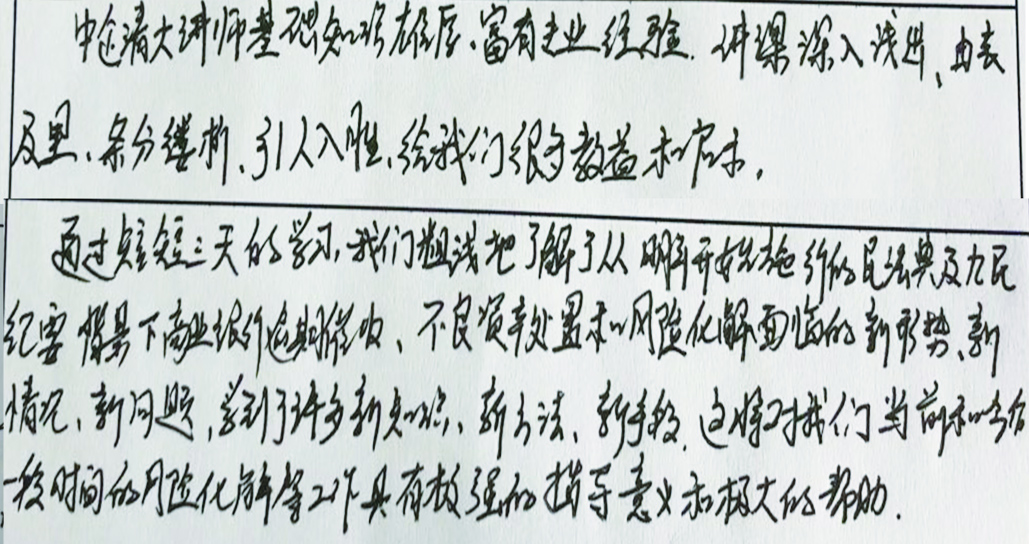 中途清大讲师基础知识雄厚、富有专业经验、讲课深入浅出、由表
及里、条分缕析、引人入胜、给我们很多教益和启示。
通过短短三天的学习,我们粗浅地了解了从明年开始施行的民法典及九民
纪要背景下商业银行逾期催收、不良资产处置和风险化解面临的新形势、新
情况、新问题,学到了许多新知识、新方法、新手段.这将对我们当前和今后
一段时间的风险化解等工作具有极强的指导意义和极大的帮助.